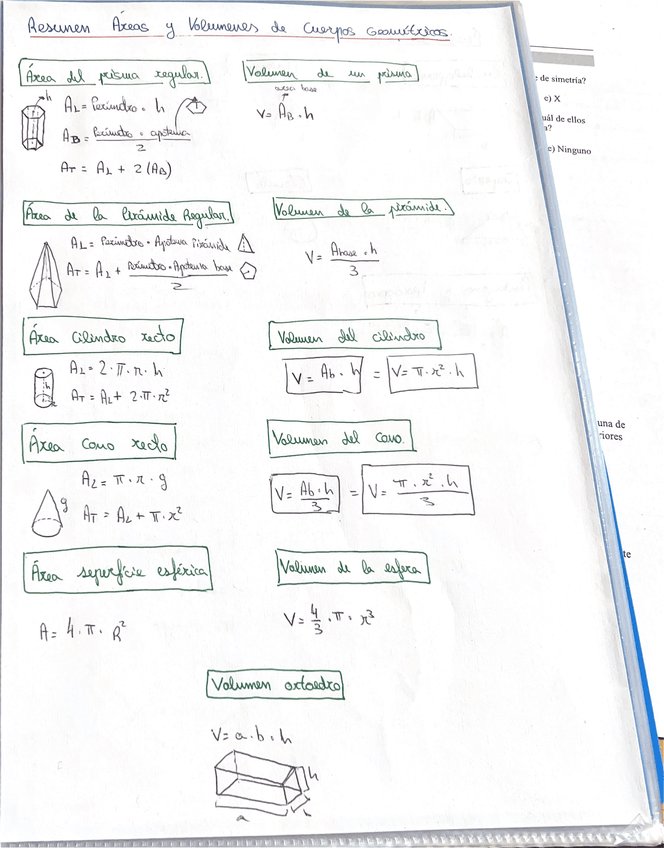 Resumen Áreas y Volumenes de Cuerpos Geométricos.
Área del prisma regular.
h
AL = Perímetro · h
AB = Perímetro · apotema / 2
AT = AL + 2 (AB)
Volumen de un prisma
area base
V = AB · h
Área de la Pirámide Regular.
AL = Perímetro · Apotema Pirámide
AT = AL + Perímetro · Apotema base / 2
Volumen de la pirámide.
V = Abase · h / 3
Área cilindro recto
h
AL = 2 · π · r · h
AT = AL + 2 · π · r²
Volumen del cilindro
V = Ab · h = V = π · r² · h
Área cono recto
AL = π · r · g
g
AT = AL + π · r²
Volumen del cono.
V = Ab · h / 3 = V = π · r² · h / 3
Área superficie esférica
A = 4 · π · R²
Volumen de la esfera
V = 4/3 · π · r³
Volumen ortoedro
V = a · b · h
h
a
de simetría?
c) X
uál de ellos
n?
e) Ninguno
una de
riores
te